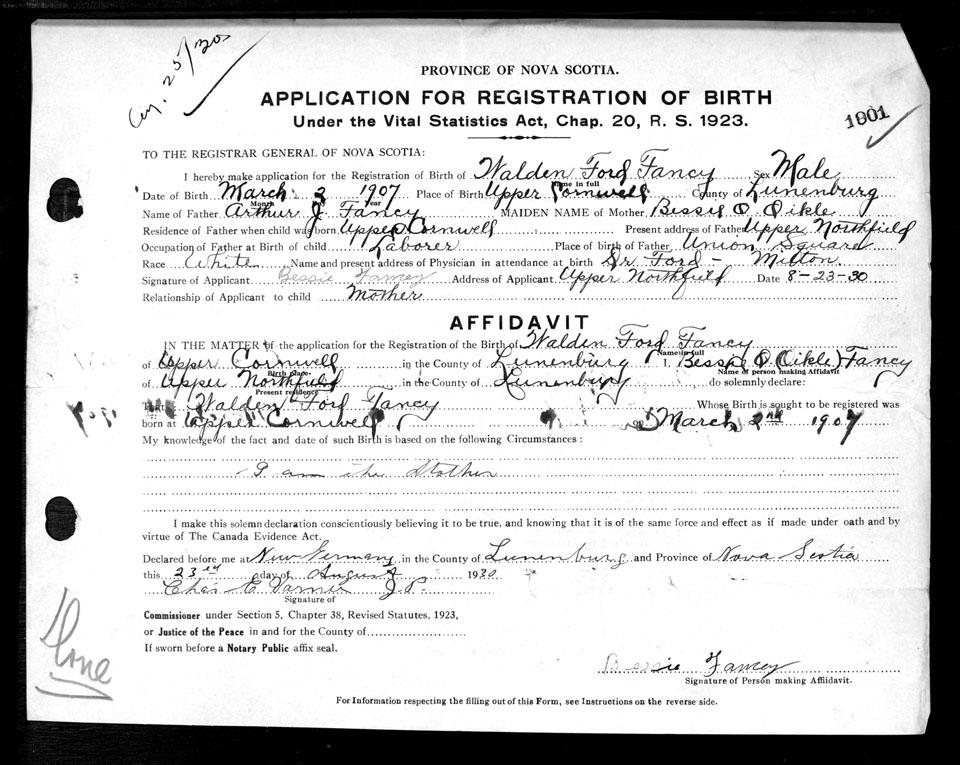 Aug. 25/30
PROVINCE OF NOVA SCOTIA.
APPLICATION FOR REGISTRATION OF BIRTH
Under the Vital Statistics Act, Chap. 20, R. S. 1923.
1901
TO THE REGISTRAR GENERAL OF NOVA SCOTIA:
I hereby make application for the Registration of Birth of Walden Ford Fancy Sex Male
Name in full
Date of Birth March 2 1907 Place of Birth Upper Cornwell County of Lunenburg
Month Year
Name of Father Arthur J. Fancy MAIDEN NAME of Mother Bessie O. Oikle
Residence of Father when child was born Upper Cornwell Present address of Father Upper Northfield
Occupation of Father at Birth of child Laborer Place of birth of Father Union Square
Race White Name and present address of Physician in attendance at birth Dr Ford - Milton.
Signature of Applicant Bessie Fancy Address of Applicant Upper Northfield Date 8-23-30
Relationship of Applicant to child Mother
AFFIDAVIT
IN THE MATTER of the application for the Registration of the Birth of Walden Ford Fancy
Name in full
of Upper Cornwell in the County of Lunenburg I, Bessie O. (Oikle) Fancy
Birth place Name of person making Affidavit
of Upper Northfield in the County of Lunenburg, do solemnly declare:
Present residence
That Walden Ford Fancy Whose Birth is sought to be registered was
born at Upper Cornwell March 2nd 1907
My knowledge of the fact and date of such Birth is based on the following Circumstances:
I am the Mother
I make this solemn declaration conscientiously believing it to be true, and knowing that it is of the same force and effect as if made under oath and by
virtue of The Canada Evidence Act.
Declared before me at New Germany, in the County of Lunenburg and Province of Nova Scotia
this 23rd day of August 1930
Chas E. Varner J.P.
Signature of
Commissioner under Section 5, Chapter 38, Revised Statutes, 1923,
or Justice of the Peace in and for the County of
If sworn before a Notary Public affix seal.
Done
Bessie Fancy
Signature of Person making Affidavit.
For Information respecting the filling out of this Form, see Instructions on the reverse side.